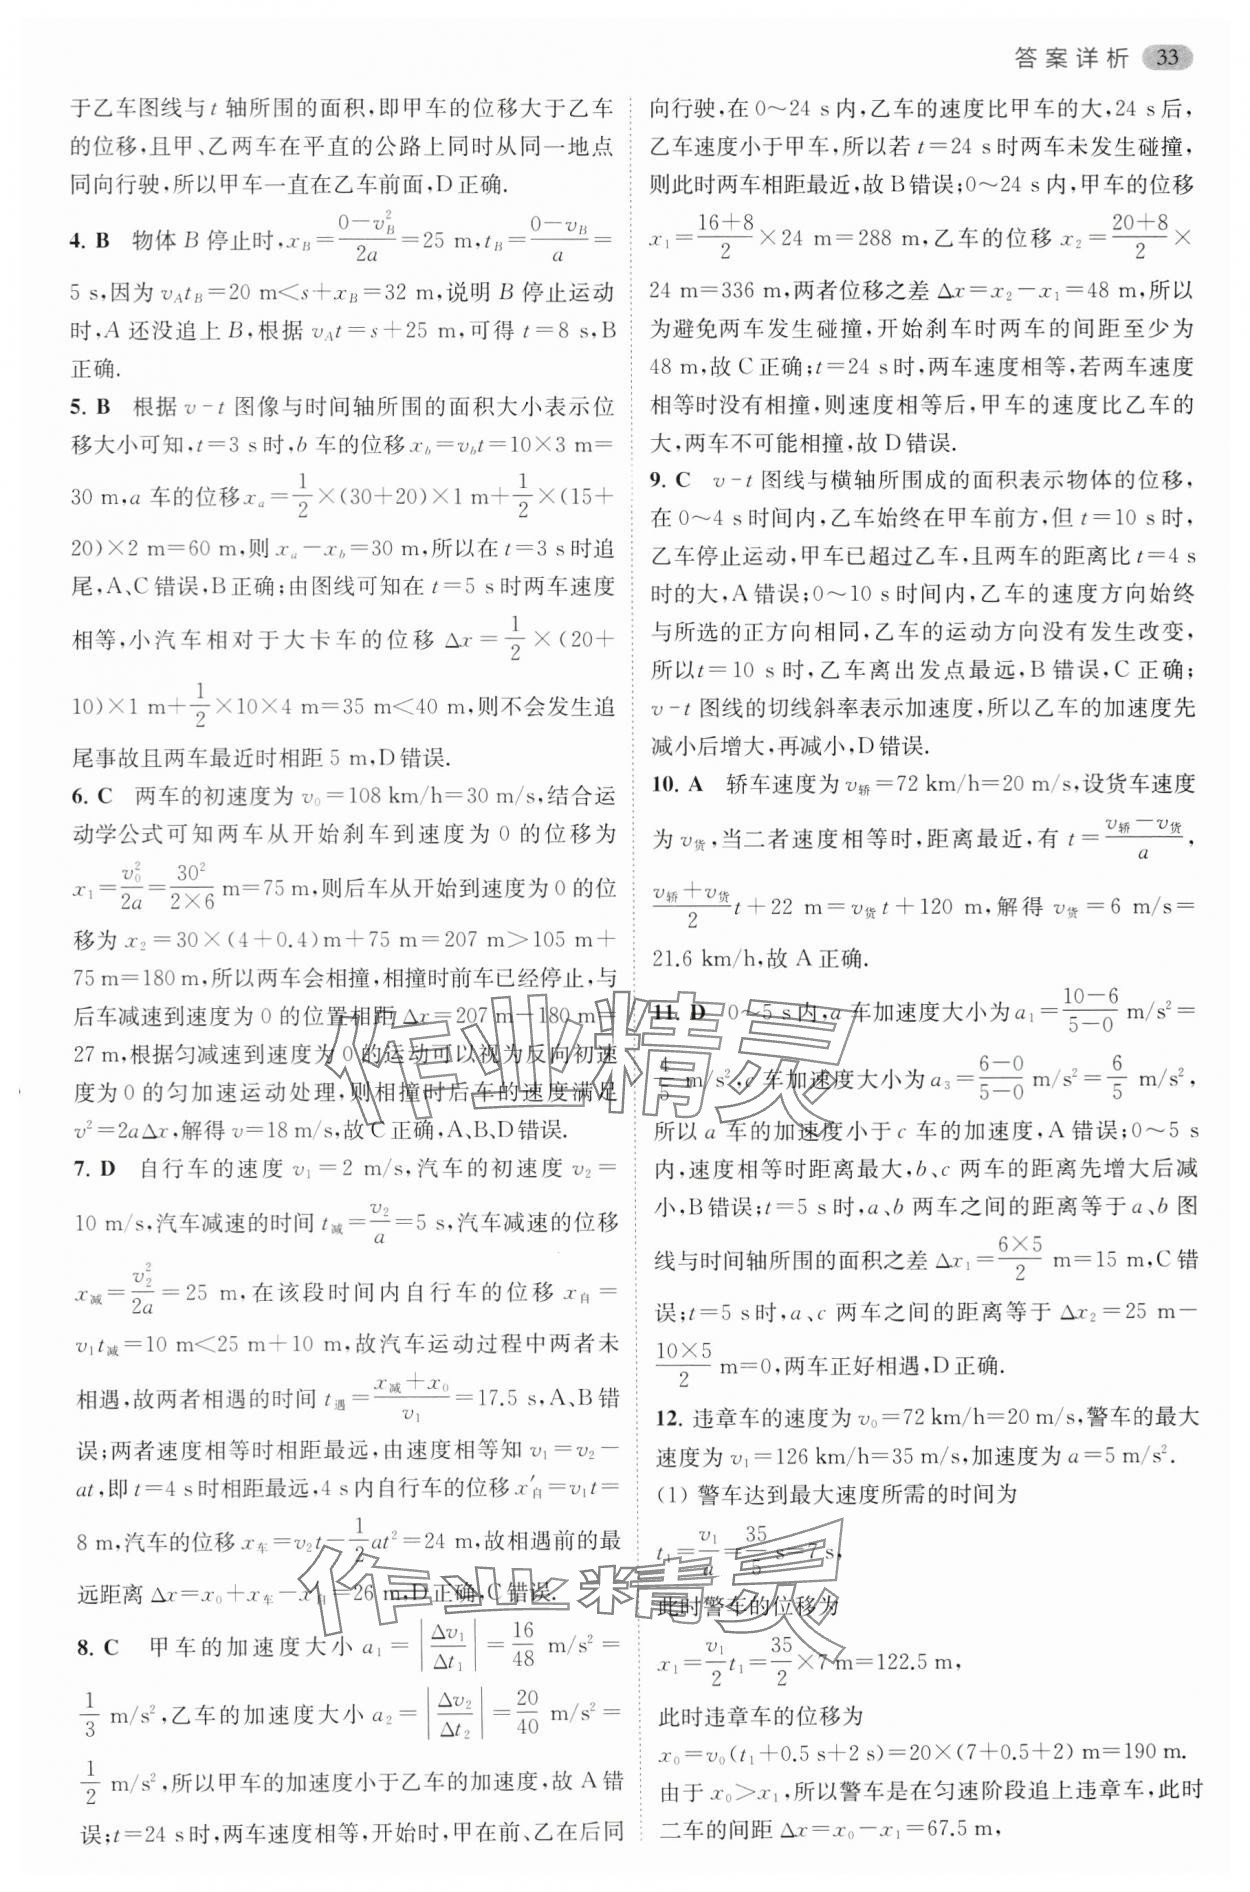 答案详析 33
于乙车图线与 t 轴所围的面积,即甲车的位移大于乙车
的位移,且甲、乙两车在平直的公路上同时从同一地点
同向行驶,所以甲车一直在乙车前面,D正确.
4. B 物体 B 停止时,x_B=\frac{0-v_B^2}{2a}=25 m,t_B=\frac{0-v_B}{a}=
5 s,因为 v_At_B=20 m<s+x_B=32 m,说明 B 停止运动
时,A 还没追上 B,根据 v_At=s+25 m,可得 t=8 s,B
正确.
5. B 根据 v-t 图像与时间轴所围的面积大小表示位
移大小可知,t=3 s时,b 车的位移 x_b=v_bt=10×3 m=
30 m,a 车的位移 x_a=\frac{1}{2}×(30+20)×1 m+\frac{1}{2}×(15+
20)×2 m=60 m,则 x_a-x_b=30 m,所以在 t=3 s时追
尾,A、C错误,B正确;由图线可知在 t=5 s时两车速度
相等,小汽车相对于大卡车的位移 Δx=\frac{1}{2}×(20+
10)×1 m+\frac{1}{2}×10×4 m=35 m<40 m,则不会发生追
尾事故且两车最近时相距 5 m,D错误.
6. C 两车的初速度为 v_0=108 km/h=30 m/s,结合运
动学公式可知两车从开始刹车到速度为 0 的位移为
x_1=\frac{v_0^2}{2a}=\frac{30^2}{2×6} m=75 m,则后车从开始到速度为 0 的位
移为 x_2=30×(4+0.4)m+75 m=207 m>105 m+
75 m=180 m,所以两车会相撞,相撞时前车已经停止,与
后车减速到速度为 0 的位置相距 Δx=207 m-180 m=
27 m,根据匀减速到速度为 0 的运动可以视为反向初速
度为 0 的匀加速运动处理,则相撞时后车的速度满足
v^2=2aΔx,解得 v=18 m/s,故C正确,A、B、D错误.
7. D 自行车的速度 v_1=2 m/s,汽车的初速度 v_2=
10 m/s,汽车减速的时间 t_减=\frac{v_2}{a}=5 s,汽车减速的位移
x_减=\frac{v_2^2}{2a}=25 m,在该段时间内自行车的位移 x_自=
v_1t_减=10 m<25 m+10 m,故汽车运动过程中两者未
相遇,故两者相遇的时间 t_遇=\frac{x_减+x_0}{v_1}=17.5 s,A、B错
误;两者速度相等时相距最远,由速度相等知 v_1=v_2-
at,即 t=4 s时相距最远,4 s内自行车的位移 x'_自=v_1t=
8 m,汽车的位移 x_车=v_2t-\frac{1}{2}at^2=24 m,故相遇前的最
远距离 Δx=x_0+x_车-x'_自=26 m,D正确,C错误.
8. C 甲车的加速度大小 a_1=|\frac{Δv_1}{Δt_1}|=\frac{16}{48} m/s^2=
\frac{1}{3} m/s^2,乙车的加速度大小 a_2=|\frac{Δv_2}{Δt_2}|=\frac{20}{40} m/s^2=
\frac{1}{2} m/s^2,所以甲车的加速度小于乙车的加速度,故 A错
误;t=24 s时,两车速度相等,开始时,甲在前、乙在后同
向行驶,在 0~24 s内,乙车的速度比甲车的大,24 s后,
乙车速度小于甲车,所以若 t=24 s时两车未发生碰撞,
则此时两车相距最近,故B错误;0~24 s内,甲车的位移
x_1=\frac{16+8}{2}×24 m=288 m,乙车的位移 x_2=\frac{20+8}{2}×
24 m=336 m,两者位移之差 Δx=x_2-x_1=48 m,所以
为避免两车发生碰撞,开始刹车时两车的间距至少为
48 m,故C正确;t=24 s时,两车速度相等,若两车速度
相等时没有相撞,则速度相等后,甲车的速度比乙车的
大,两车不可能相撞,故D错误.
9. C v-t 图线与横轴所围成的面积表示物体的位移,
在 0~4 s时间内,乙车始终在甲车前方,但 t=10 s时,
乙车停止运动,甲车已超过乙车,且两车的距离比 t=4 s
时的大,A错误;0~10 s时间内,乙车的速度方向始终
与所选的正方向相同,乙车的运动方向没有发生改变,
所以t=10 s时,乙车离出发点最远,B错误,C正确;
v-t 图线的切线斜率表示加速度,所以乙车的加速度先
减小后增大,再减小,D错误.
10. A 轿车速度为 v_轿=72 km/h=20 m/s,设货车速度
为 v_货,当二者速度相等时,距离最近,有 t=\frac{v_轿-v_货}{a},
\frac{v_轿+v_货}{2}t+22 m=v_货t+120 m,解得 v_货=6 m/s=
21.6 km/h,故A正确.
11. D 0~5 s内,a 车加速度大小为 a_1=\frac{10-6}{5-0} m/s^2=
\frac{4}{5} m/s^2,c 车加速度大小为 a_3=\frac{6-0}{5-0} m/s^2=\frac{6}{5} m/s^2,
所以 a 车的加速度小于 c 车的加速度,A错误;0~5 s
内,速度相等时距离最大,b、c 两车的距离先增大后减
小,B错误;t=5 s时,a、b 两车之间的距离等于 a、b 图
线与时间轴所围的面积之差 Δx_1=\frac{6×5}{2} m=15 m,C错
误;t=5 s时,a、c 两车之间的距离等于 Δx_2=25 m-
\frac{10×5}{2} m=0,两车正好相遇,D正确.
12. 违章车的速度为 v_0=72 km/h=20 m/s,警车的最大
速度为 v_1=126 km/h=35 m/s,加速度为 a=5 m/s^2.
(1) 警车达到最大速度所需的时间为
t_1=\frac{v_1}{a}=\frac{35}{5} s=7 s,
此时警车的位移为
x_1=\frac{v_1}{2}t_1=\frac{35}{2}×7 m=122.5 m,
此时违章车的位移为
x_0=v_0(t_1+0.5 s+2 s)=20×(7+0.5+2) m=190 m.
由于 x_0>x_1,所以警车是在匀速阶段追上违章车,此时
二车的间距 Δx=x_0-x_1=67.5 m,
作业精灵
作业精灵